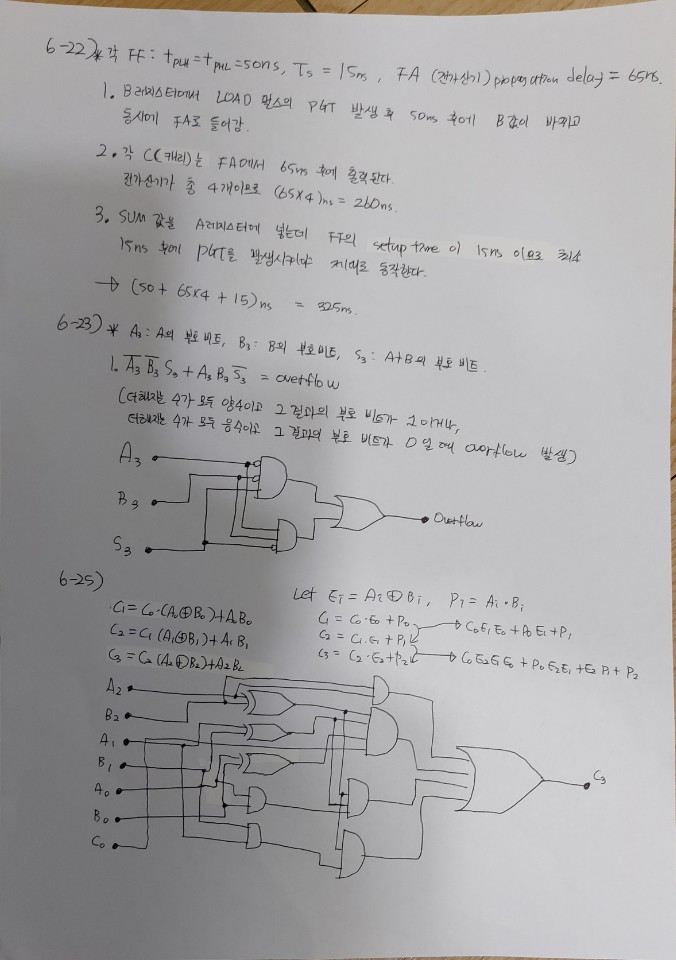 6-22) * 각 FF : tPLH = tPHL = 50ns, Ts = 15ns, FA (전가산기) propagation delay = 65ns.
1. B레지스터에서 LOAD 펄스의 PGT 발생 후 50ns 후에 B값이 바뀌고
동시에 FA로 들어감.
2. 각 C(캐리)는 FA에서 65ns 후에 출력된다.
전가산기가 총 4개이므로 (65×4)ns = 260ns.
3. SUM 값을 A레지스터에 넣는데 FF의 setup time이 15ns이므로 최소
15ns 후에 PGT를 발생시켜야 제대로 동작한다.
→ (50 + 65×4 + 15)ns = 325ns.
6-23) * A₃ : A의 부호 비트, B₃ : B의 부호비트, S₃ : A+B의 부호 비트.
1. A̅₃ B̅₃ S₃ + A₃ B₃ S̅₃ = overflow
(더해지는 수가 모두 양수이고 그 결과의 부호 비트가 1이거나,
더해지는 수가 모두 음수이고 그 결과의 부호 비트가 0일 때 overflow 발생)
A₃
B₃
Overflow
S₃
6-25)
Let Ei = Ai⊕Bi, Pi = Ai·Bi
C₁ = C₀·(A₀⊕B₀)+A₀B₀
C₁ = C₀·E₀ + P₀
C₂ = C₁(A₁⊕B₁)+A₁B₁
C₂ = C₁·E₁ + P₁ → C₀E₁E₀ + P₀E₁ + P₁
C₃ = C₂(A₂⊕B₂)+A₂B₂
C₃ = C₂·E₂ + P₂ → C₀E₂E₁E₀ + P₀E₂E₁ + E₂P₁ + P₂
A₂
B₂
A₁
B₁
A₀
B₀
C₀
C₃